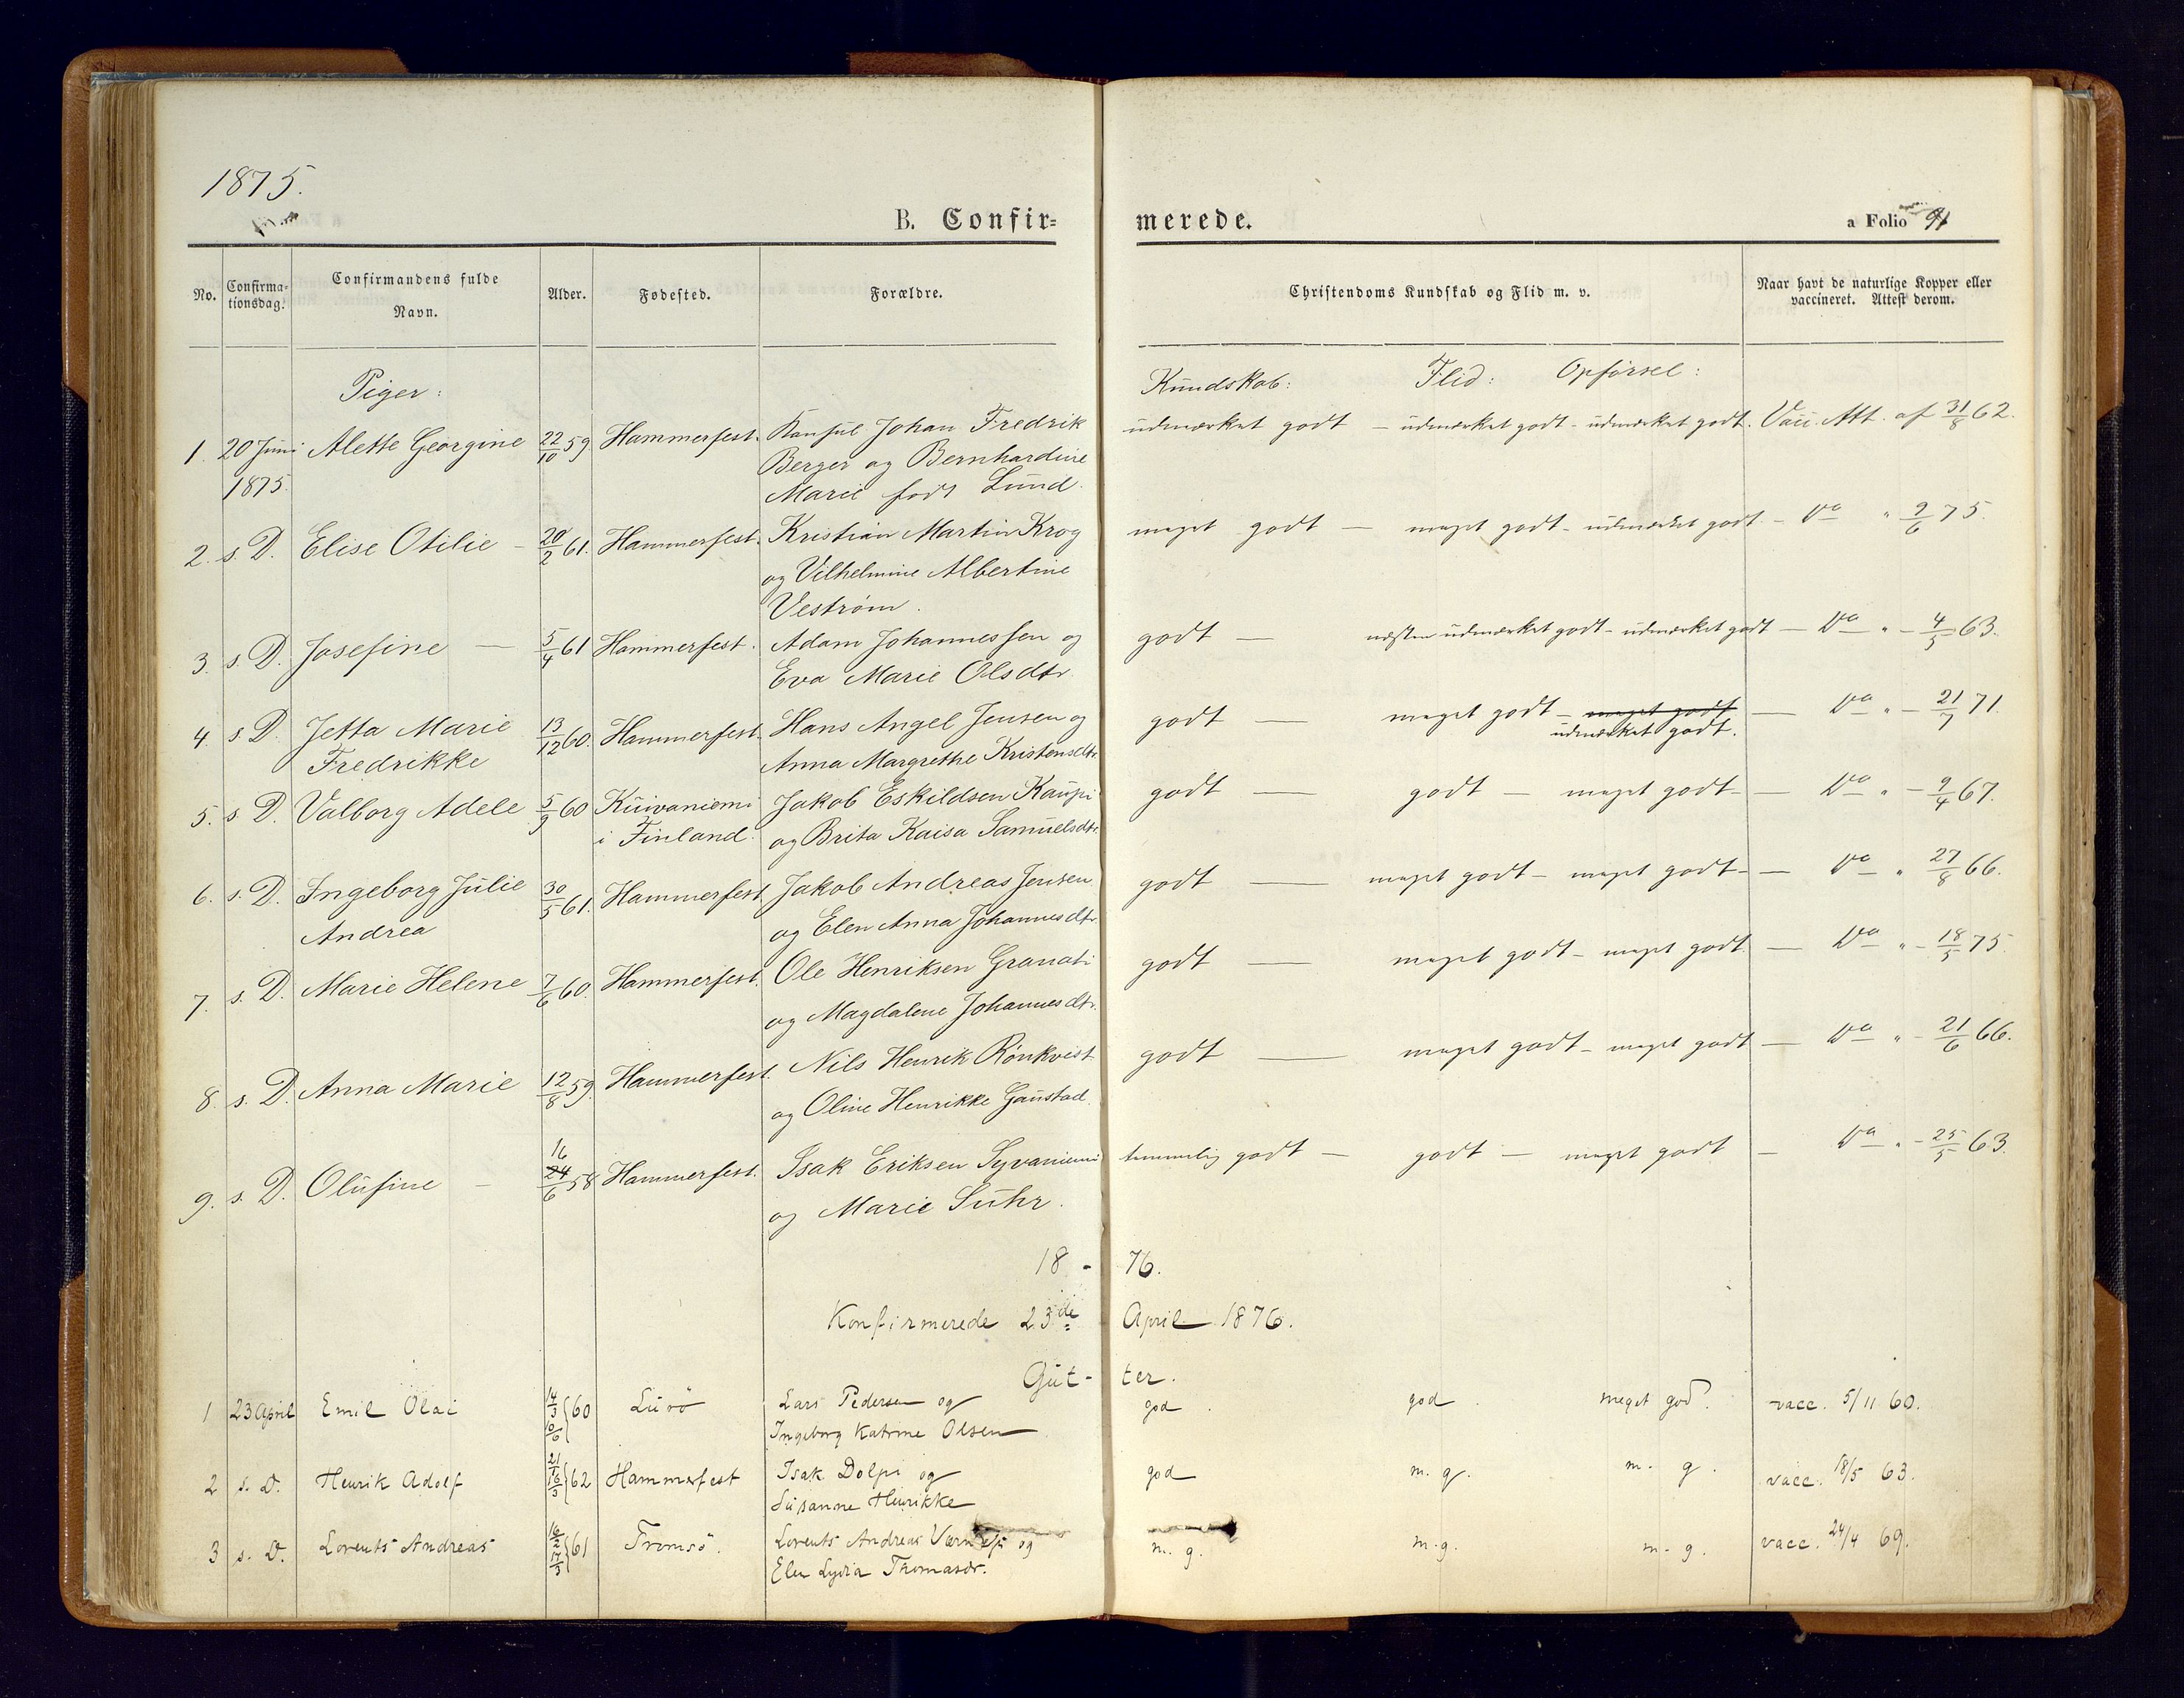 1875.
B. Confir=
merede.
a Folio 91
No.
Confirma-
tionsdag.
Confirmandens fulde
Navn.
Alder.
Fødested.
Forældre.
Christendoms Kundskab og Flid m. v.
Naar havt de naturlige Kopper eller
vaccineret. Attest derom.
Piger:
Kundskab: Flid: Opførsel:
1. 20 Juni Alette Georgine 22/10 59. Hammerfest. Konsul Johan Fredrik udmærket godt – udmærket godt – udmærket godt. Vacc. Att. af 31/8 62.
1875. Berger og Bernhardine
Marie født Lund.
2. s. D. Elise Otilie – 20/2 61. Hammerfest. Kristian Martin Krog meget godt – meget godt – udmærket godt – Do " 9/6 75.
og Vilhelmine Albertine
Vestrøm.
3. s. D. Josefine – 5/4 61 Hammerfest. Adam Johannessen og godt – næsten udmærket godt – udmærket godt – Do " – 4/5 63.
Eva Marie Olsdtr.
4. s. D. Jetta Marie 13/12 60. Hammerfest. Hans Angel Jensen og godt – meget godt – meget godt – Do " – 21/7 71.
Fredrikke Anna Margrethe Kristensdtr. udmærket godt.
5. s. D. Valborg Adele 5/9 60 Kuivaniemi Jakob Eskildsen Kaupi godt – godt – meget godt – Do " – 9/4 67.
i Finland. og Brita Kaisa Samuelsdtr.
6. s. D. Ingeborg Julie 30/5 61. Hammerfest Jakob Andreas Jensen godt – meget godt – meget godt – Do " 27/8 66.
Andrea og Elen Anna Johannesdtr.
7. s. D. Marie Helene 7/6 60. Hammerfest. Ole Henriksen Granati godt – meget godt – meget godt – Do " – 18/5 75.
og Magdalene Johannesdtr.
8. s. D. Anna Marie 12/8 59. Hammerfest. Nils Henrik Rönkvist godt – meget godt – meget godt – Do " – 21/6 66.
og Oline Henrikke Gaustad.
16
9. s. D. Olufine – 24/6 58 Hammerfest. Isak Eriksen Syvaniemi temmelig godt – godt – meget godt – Do " – 25/5 63.
og Marie Suhr.
18 - 76.
Konfirmerede 23de April 1876.
Gut- ter.
1 23 April Emil Olai 14/3 10/6 60 Lurö Lars Pedersen og god. god. meget god. vacc. 5/11 60.
Ingeborg Katrine Olsen
2 s. D. Henrik Adolf 62 Hammerfest Isak Dolpi og god m. g. m. g. vacc. 18/5 63.
Susanne Henrikke
3 s. D. Lorents Andreas 61 Tromsö. Lorents Andreas og m. g. m. g. m. g. vacc. 24/4 69.
Elen Lydia Thomasdr.